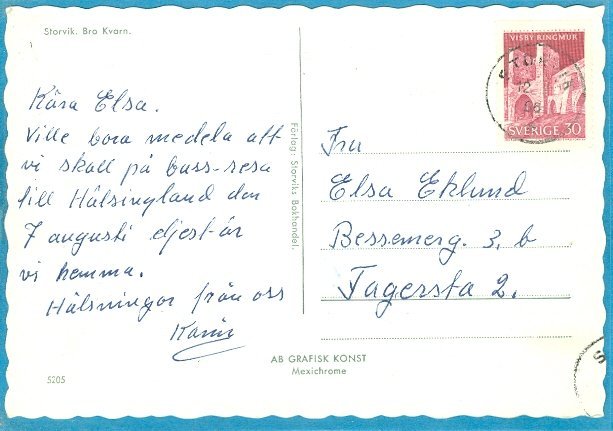 Storvik. Bro Kvarn.
Kära Elsa.
Ville bara medela att
vi skall på buss-resa
till Hälsingland den
7 augusti eljest är
vi hemma.
Hälsningar från oss
Karin
Förlag: Storviks Bokhandel.
VISBY RINGMUR
SVERIGE 30
Fru
Elsa Eklund
Bessemerg. 3, b
Fagersta 2.
AB GRAFISK KONST
Mexichrome
5205